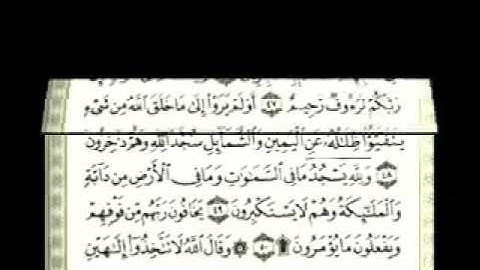 رَبَّكُمْ لَرَءُوفٌ رَّحِيمٌ ٤٧ أَوَلَمْ يَرَوْا۟ إِلَىٰ مَا خَلَقَ ٱللَّهُ مِن شَىْءٍ
يَتَفَيَّؤُا۟ ظِلَٰلُهُۥ عَنِ ٱلْيَمِينِ وَٱلشَّمَآئِلِ سُجَّدًا لِّلَّهِ وَهُمْ دَٰخِرُونَ
٤٨ وَلِلَّهِ يَسْجُدُ مَا فِى ٱلسَّمَٰوَٰتِ وَمَا فِى ٱلْأَرْضِ مِن دَآبَّةٍ
وَٱلْمَلَٰٓئِكَةُ وَهُمْ لَا يَسْتَكْبِرُونَ ٤٩ يَخَافُونَ رَبَّهُم مِّن فَوْقِهِمْ
وَيَفْعَلُونَ مَا يُؤْمَرُونَ ۩ ٥٠ ۞ وَقَالَ ٱللَّهُ لَا تَتَّخِذُوٓا۟ إِلَٰهَيْنِ